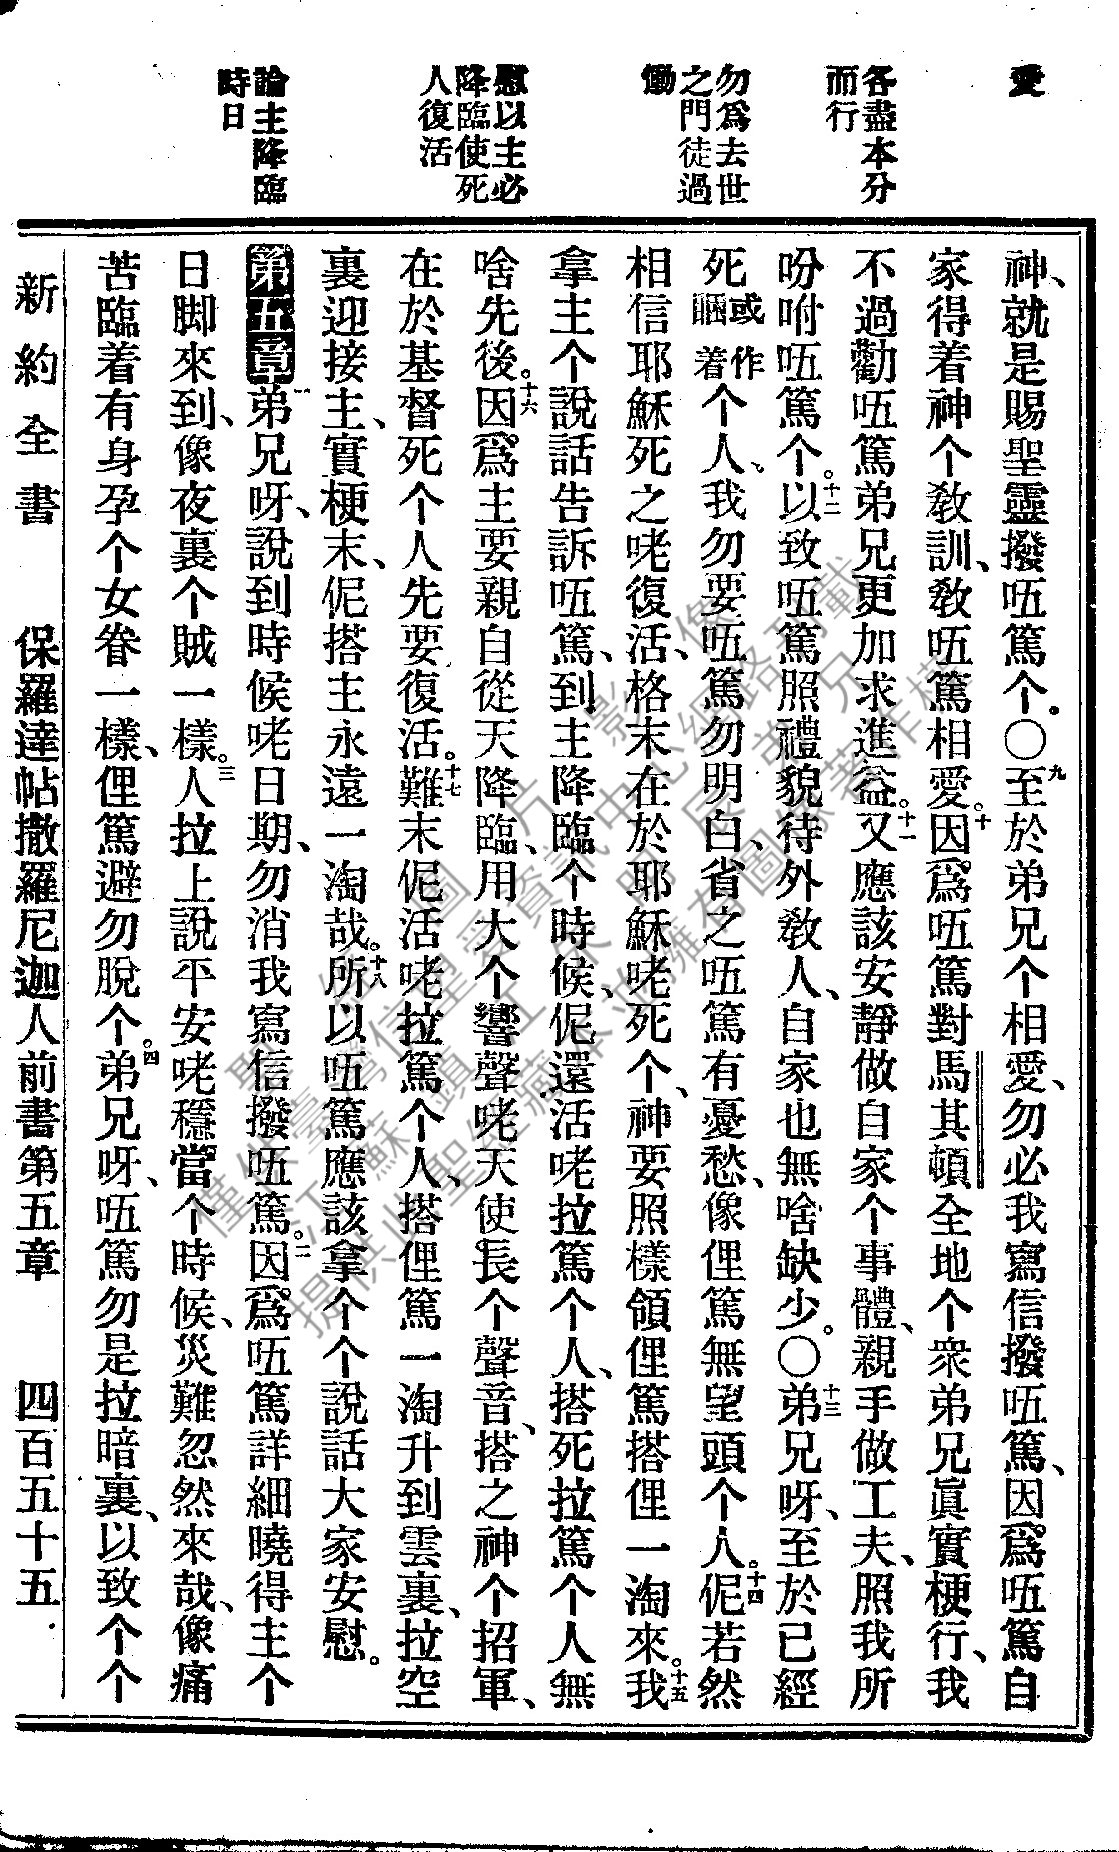 愛
各盡本分
而行
勿爲去世
之門徒過
慟
慰以主必
降臨使死
人復活
論主降臨
時日
神、就是賜聖靈撥㕶篤个。〇九至於弟兄个相愛、勿必我寫信撥㕶篤、因爲㕶篤自
家得着神个敎訓、敎㕶篤相愛。十因爲㕶篤對馬其頓全地个衆弟兄眞實梗行、我
不過勸㕶篤弟兄更加求進益。十一又應該安靜做自家个事體、親手做工夫、照我所
吩咐㕶篤个。十二以致㕶篤照禮貌待外敎人、自家也無啥缺少。〇十三弟兄呀、至於已經
死或作睏着个人、我勿要㕶篤勿明白、省之㕶篤有憂愁、像俚篤無望頭个人。十四伲若然
相信耶穌死之咾復活、格末在於耶穌咾死个、神要照樣領俚篤搭俚一淘來。十五我
拿主个說話告訴㕶篤、到主降臨个時候、伲還活咾拉篤个人、搭死拉篤个人無
啥先後。十六因爲主要親自從天降臨、用大个響聲咾天使長个聲音、搭之神个招軍、
在於基督死个人先要復活。十七難末伲活咾拉篤个人、搭俚篤一淘升到雲裏、拉空
裏迎接主、實梗末、伲搭主永遠一淘哉。十八所以㕶篤應該拿个个說話大家安慰。
第五章一弟兄呀、說到時候咾日期、勿消我寫信撥㕶篤。二因爲㕶篤詳細曉得主个
日脚來到、像夜裏个賊一樣。三人拉上說平安咾穩當个時候、災難忽然來哉、像痛
苦臨着有身孕个女眷一樣、俚篤避勿脫个。四弟兄呀、㕶篤勿是拉暗裏、以致个个
新約全書 保羅達帖撒羅尼迦人前書第五章 四百五十五